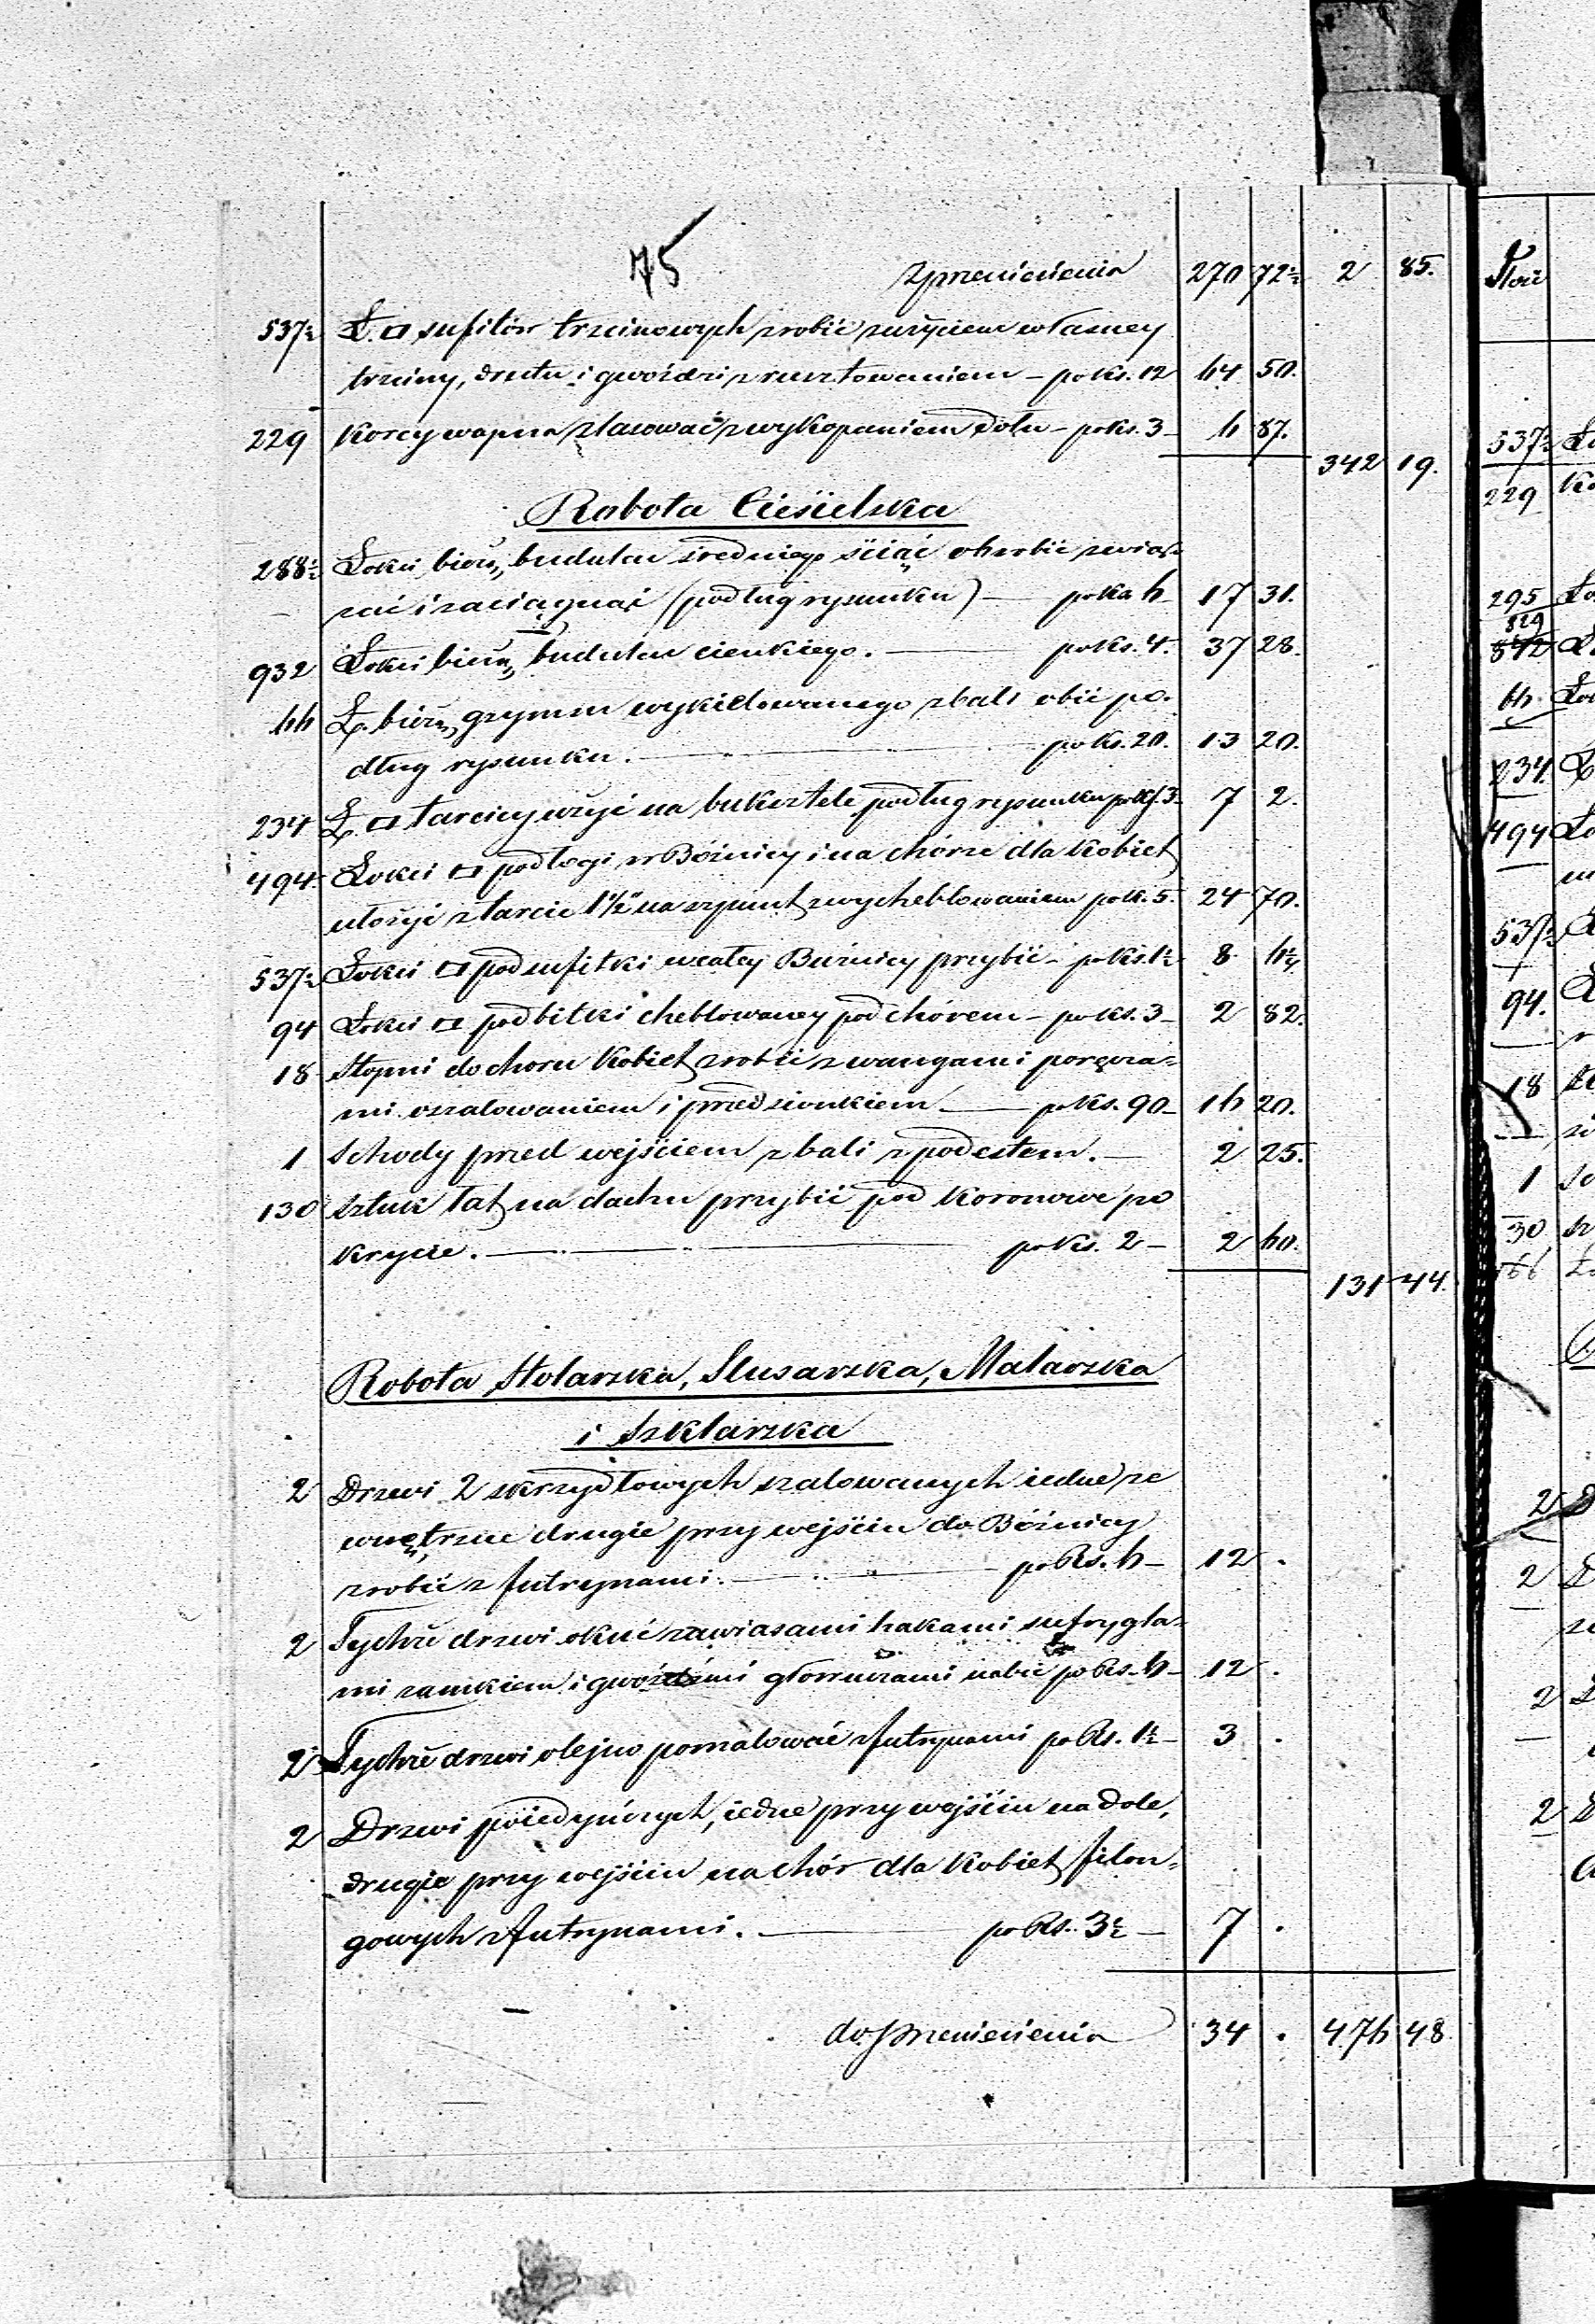 75
z przeniesienia 270 72½ 2 85.
537½ Ł. □ sufitów trzcinowych zrobić z użyciem własney
trzciny, drutu i gwoździ z rusztowaniem – po ks. 12 64 50.
229 Korcy wapna zlasować z wykopaniem dołu – po ks. 3 – 6 87.
342 19.
Robota Ciesielska
288½ Łokci bieżą, budulcu średniego ściąć obrobić zwią-
zać i zaciągnąć (podług rysunku) — po ks 6 17 31.
932 Łokci bieżą, budulcu cienkiego. — po ks. 4. 37 28.
66 Ł. bieżą, gzymsu wykielowanego z bali obić po-
dług rysunku. — po ks. 20. 13 20.
234 Ł. □ tarcicy użyć na buksztele podług rysunku po ks. 3 – 7 2.
494 Łokci □ podłogi w Bóżnicy i na chórze dla Kobiet
ułożyć z tarcic 1½" na szpunt z wycheblowaniem po k. 5. 24 70.
537½ Łokci □ podsufitki w całey Bużnicy przybić – po ks. 1½ 8 6½
94 Łokci □ podbitki cheblowaney pod chórem – po ks. 3 – 2 82.
18 Stopni do choru Kobiet zrobić z wangami poręcza-
mi oszalowaniem i przedsionkiem — po ks. 90 – 16 20.
1 Schody przed wejściem z bali z podestem. — 2 25.
130 sztuk łat na dachu przybić pod Koronowe po
krycie. — po ks. 2 – 2 60.
131 44.
Robota Stolarska, Slusarska, Malarska
i Szklarska
2 Drzwi 2 skrzydłowych szalowanych iedne ze
wnętrzne drugie przy wejściu do Bóżnicy
zrobić z futrynami. — po Rs. 6 – 12 .
2 Tychże drzwi okuć zawiasami hakami sufrygla-
mi zamkiem i gwoźdźmi głowiczami nabić po Rs. 6 – 12 .
2 Tychże drzwi olejno pomalować z futrynami po Rs. 1½ – 3 .
2 Drzwi poiedyńczych, iedne przy wejściu na dole,
drugie przy wejściu na chór dla Kobiet filon-
gowych z futrynami. — po Rs. 3½ – 7 .
do przeniesienia 34 . 476 48
Ilość
537½ Ło
229 Ko
295 Ło
829
Ł
66. Ło
234. Ł
494 Ło
537½
94.
18
1
30
166
2 D
2 D
2
2